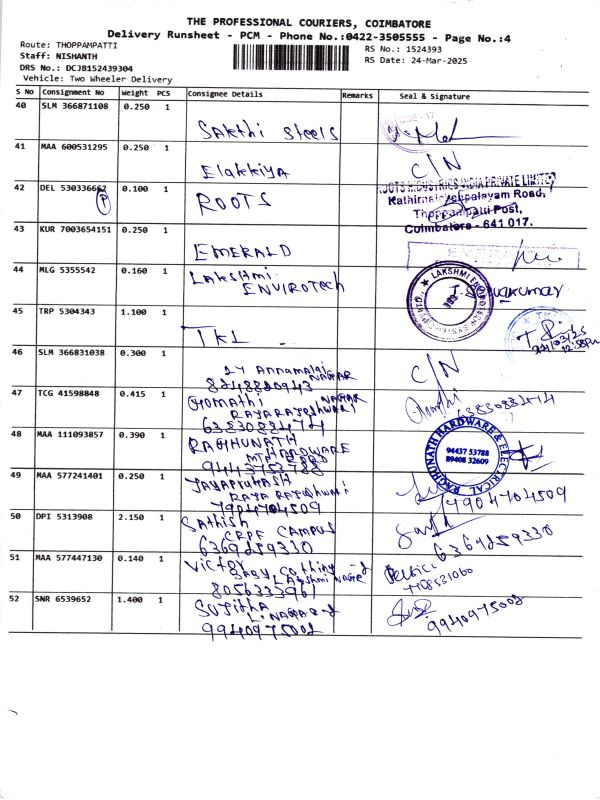 THE PROFESSIONAL COURIERS, COIMBATORE
Delivery Runsheet - PCM - Phone No.:0422-3505555 - Page No.:4
Route: THOPPAMPATTI
RS No.: 1524393
Staff: NISHANTH
RS Date: 24-Mar-2025
DRS No.: DCJB152439304
Vehicle: Two Wheeler Delivery
S No Consignment No Weight PCS Consignee Details Remarks Seal & Signature
40 SLM 366871108 0.250 1
Sakthi Steels
41 MAA 600531295 0.250 1
Elakkiya C/N
42 DEL 530336662 0.100 1
P
ROOTS
ROOTS INDUSTRIES INDIA PRIVATE LIMITED
Kathirnaickenpalayam Road,
Thoppampatti Post,
Coimbatore - 641 017.
43 KUR 7003654151 0.250 1
EMERALD
44 MLG 5355542 0.160 1
Lakshmi
ENVIROTech
45 TRP 5304343 1.100 1
TKL
46 SLM 366831038 0.300 1
24 Annamalai
NAGAR
8248820943
C/N
47 TCG 41598848 0.415 1
Gomathi NAGAR
RAYARAYeshwari
6383088474
48 MAA 111093857 0.390 1
RAGHUNATH
HARDWARE
9443753788
RAGHUNATH HARDWARE & ELECTRICAL
94437 53788
89408 32609
49 MAA 577241401 0.250 1
JAYAPRakash
7904704509
7904704509
50 DPI 5313908 2.150 1
Sathish
CRPF CAMPUS
6369259330
6369259330
51 MAA 577447130 0.140 1
Victor
Lakshmi Nagar
8056333961
52 SNR 6539652 1.400 1
Sujitha
L.NAGAR
9940975008
9940975008